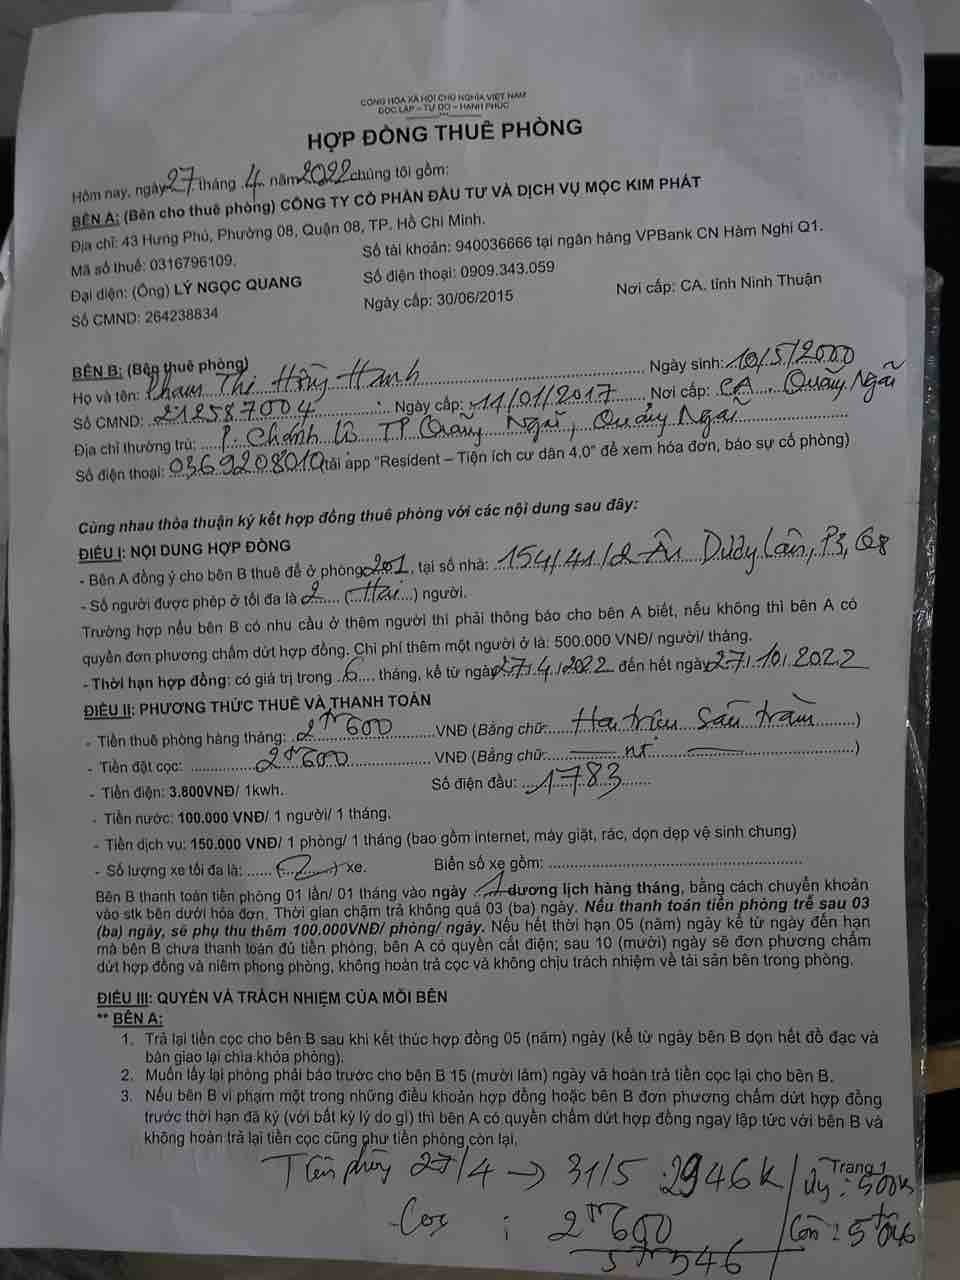 CỘNG HÒA XÃ HỘI CHỦ NGHĨA VIỆT NAM
ĐỘC LẬP – TỰ DO – HẠNH PHÚC
HỢP ĐỒNG THUÊ PHÒNG
Hôm nay, ngày 27 tháng 4 năm 2022 chúng tôi gồm:
BÊN A: (Bên cho thuê phòng) CÔNG TY CỔ PHẦN ĐẦU TƯ VÀ DỊCH VỤ MỘC KIM PHÁT
Địa chỉ: 43 Hưng Phú, Phường 08, Quận 08, TP. Hồ Chí Minh.
Mã số thuế: 0316796109. Số tài khoản: 940036666 tại ngân hàng VPBank CN Hàm Nghi Q1.
Đại diện: (Ông) LÝ NGỌC QUANG Số điện thoại: 0909.343.059
Số CMND: 264238834 Ngày cấp: 30/06/2015 Nơi cấp: CA. tỉnh Ninh Thuận
BÊN B: (Bên thuê phòng)
Họ và tên: Phạm Thị Hồng Hạnh Ngày sinh: 10/5/2000
Số CMND: 212587004 Ngày cấp: 11/01/2017 Nơi cấp: CA Quảng Ngãi
Địa chỉ thường trú: P. Chánh Lộ TP Quảng Ngãi, Quảng Ngãi
Số điện thoại: 0369208010 (tải app "Resident – Tiện ích cư dân 4.0" để xem hóa đơn, báo sự cố phòng)
Cùng nhau thỏa thuận ký kết hợp đồng thuê phòng với các nội dung sau đây:
ĐIỀU I: NỘI DUNG HỢP ĐỒNG
- Bên A đồng ý cho bên B thuê để ở phòng 201, tại số nhà: 154/41/2 Âu Dương Lân, P3, Q8
- Số người được phép ở tối đa là 2 (Hai) người.
Trường hợp nếu bên B có nhu cầu ở thêm người thì phải thông báo cho bên A biết, nếu không thì bên A có
quyền đơn phương chấm dứt hợp đồng. Chi phí thêm một người ở là: 500.000 VNĐ/ người/ tháng.
- Thời hạn hợp đồng: có giá trị trong 6 tháng, kể từ ngày 27/4/2022 đến hết ngày 27/10/2022
ĐIỀU II: PHƯƠNG THỨC THUÊ VÀ THANH TOÁN
- Tiền thuê phòng hàng tháng: 2tr600 VNĐ (Bằng chữ: Hai triệu sáu trăm)
- Tiền đặt cọc: 2tr600 VNĐ (Bằng chữ: nt)
- Tiền điện: 3.800VNĐ/ 1kwh. Số điện đầu: 1783
- Tiền nước: 100.000 VNĐ/ 1 người/ 1 tháng.
- Tiền dịch vụ: 150.000 VNĐ/ 1 phòng/ 1 tháng (bao gồm internet, máy giặt, rác, dọn dẹp vệ sinh chung)
- Số lượng xe tối đa là: (2) xe. Biển số xe gồm:
Bên B thanh toán tiền phòng 01 lần/ 01 tháng vào ngày 1 dương lịch hàng tháng, bằng cách chuyển khoản
vào stk bên dưới hóa đơn. Thời gian chậm trả không quá 03 (ba) ngày. Nếu thanh toán tiền phòng trễ sau 03
(ba) ngày, sẽ phụ thu thêm 100.000VNĐ/ phòng/ ngày. Nếu hết thời hạn 05 (năm) ngày kể từ ngày đến hạn
mà bên B chưa thanh toán đủ tiền phòng, bên A có quyền cắt điện; sau 10 (mười) ngày sẽ đơn phương chấm
dứt hợp đồng và niêm phong phòng, không hoàn trả cọc và không chịu trách nhiệm về tài sản bên trong phòng.
ĐIỀU III: QUYỀN VÀ TRÁCH NHIỆM CỦA MỖI BÊN
** BÊN A:
1. Trả lại tiền cọc cho bên B sau khi kết thúc hợp đồng 05 (năm) ngày (kể từ ngày bên B dọn hết đồ đạc và
bàn giao lại chìa khóa phòng).
2. Muốn lấy lại phòng phải báo trước cho bên B 15 (mười lăm) ngày và hoàn trả tiền cọc lại cho bên B.
3. Nếu bên B vi phạm một trong những điều khoản hợp đồng hoặc bên B đơn phương chấm dứt hợp đồng
trước thời hạn đã ký (với bất kỳ lý do gì) thì bên A có quyền chấm dứt hợp đồng ngay lập tức với bên B và
không hoàn trả lại tiền cọc cũng như tiền phòng còn lại.
Trang 1
Tiền phòng 27/4 → 31/5 : 2946k / Ứng : 500k
- Cọc : 2tr600 Còn : 5tr046
5tr546